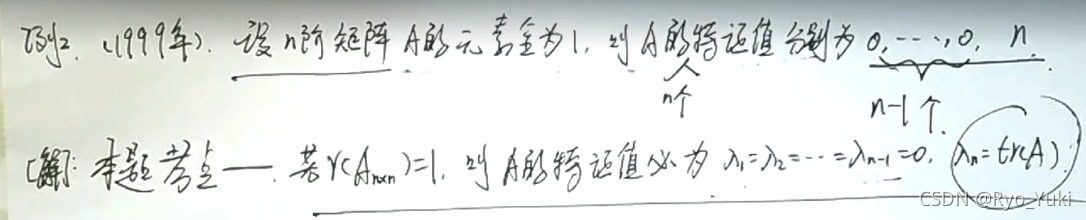 例2. (1999年). 设n阶矩阵A的元素全为1, 则A的特征值分别为 0, ⋯, 0, n.
n个
n-1个.
[解]: 本题考点 —— 若r(Aₙₓₙ)=1, 则A的特征值必为 λ₁=λ₂=⋯=λₙ₋₁=0, λₙ=tr(A)
CSDN @Ryo_Yuki